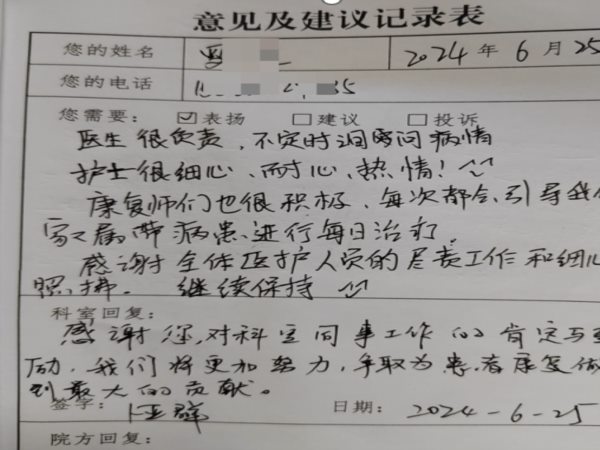 意见及建议记录表
您的姓名 2024年6月25
您的电话 35
您需要: ☑表扬 □建议 □投诉
医生很负责，不定时询问病情
护士很细心、耐心、热情!
康复师们也很积极，每次都会引导我
家属带病患进行每日治疗.
感谢全体医护人员的尽责工作和细心
照拂. 继续保持
科室回复:
感谢您对科室同事工作的肯定与
励，我们将更加努力，争取为患者康复做
到最大的贡献。
签字: 日期: 2024-6-25
院方回复: